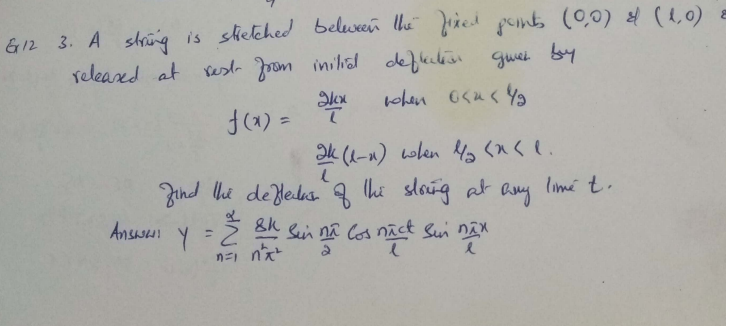 G12 3. A string is stretched between the fixed points (0,0) & (l,0) &
released at rest from initial deflection given by
f(x) = 2kx/l when 0<x<l/2
2k/l (l-x) when l/2 <x< l.
find the deflection of the string at any time t.
Answer: y = ∑_{n=1}^{∞} 8k/n²π² Sin nπ/2 Cos nπct/l Sin nπx/l